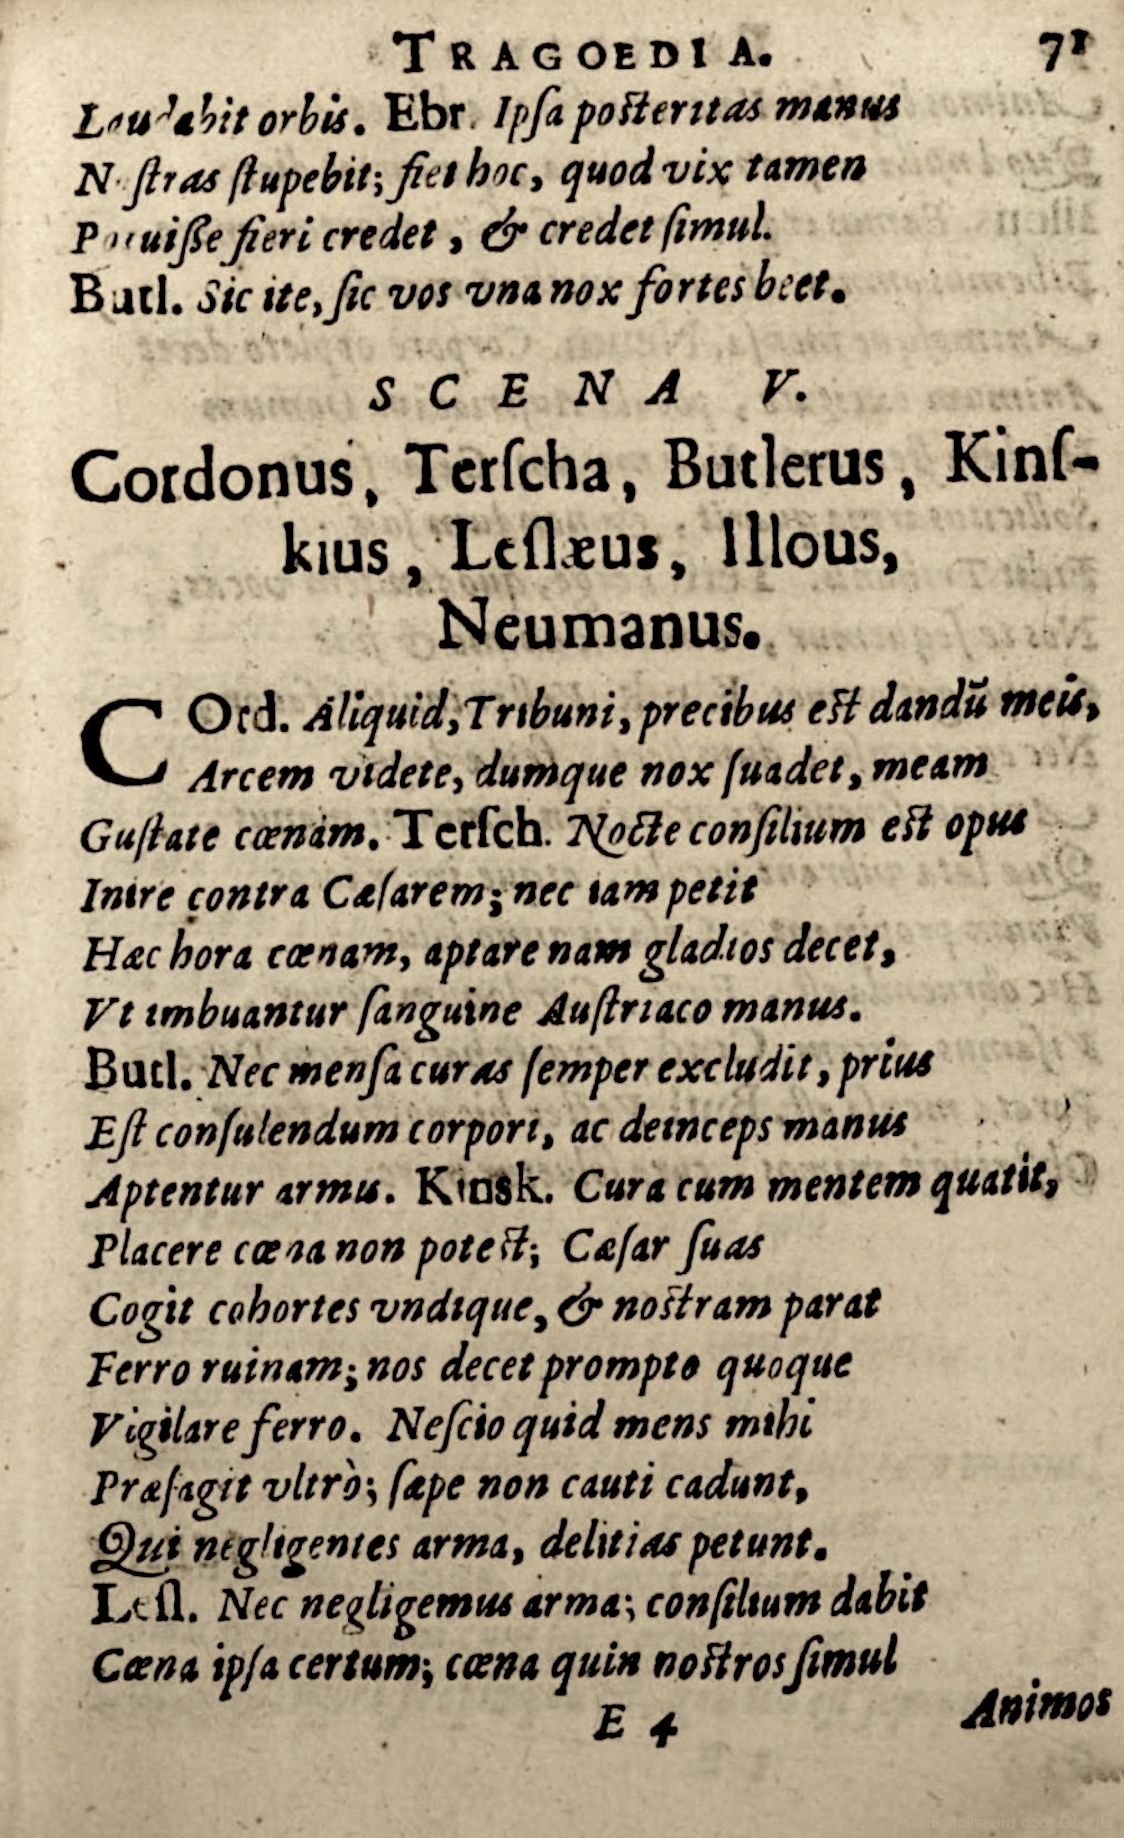 TRAGOEDIA. 71
Laudabit orbis. Ebr. Ipſa poſteritas manus
Noſtras ſtupebit; fiet hoc, quod vix tamen
Potuiſſe fieri credet, & credet ſimul.
Butl. Sic ite, ſic vos vna nox fortes beet.
SCENA V.
Cordonus, Terſcha, Butlerus, Kinſ-
kius, Leſlæus, Illous,
Neumanus.
COrd. Aliquid, Tribuni, precibus eſt dandū meis,
Arcem videte, dumque nox ſuadet, meam
Guſtate cœnam. Terſch. Nocte conſilium eſt opus
Inire contra Cæſarem; nec iam petit
Hæc hora cœnam, aptare nam gladios decet,
Vt imbuantur ſanguine Auſtriaco manus.
Butl. Nec menſa curas ſemper excludit, prius
Eſt conſulendum corpori, ac deinceps manus
Aptentur armis. Kinsk. Cura cum mentem quatit,
Placere cœna non poteſt; Cæſar ſuas
Cogit cohortes vndique, & noſtram parat
Ferro ruinam; nos decet prompto quoque
Vigilare ferro. Neſcio quid mens mihi
Præſagit vltrò; ſæpe non cauti cadunt,
Qui negligentes arma, delitias petunt.
Leſl. Nec negligemus arma; conſilium dabit
Cœna ipſa certum; cœna quin noſtros ſimul
E 4 Animos